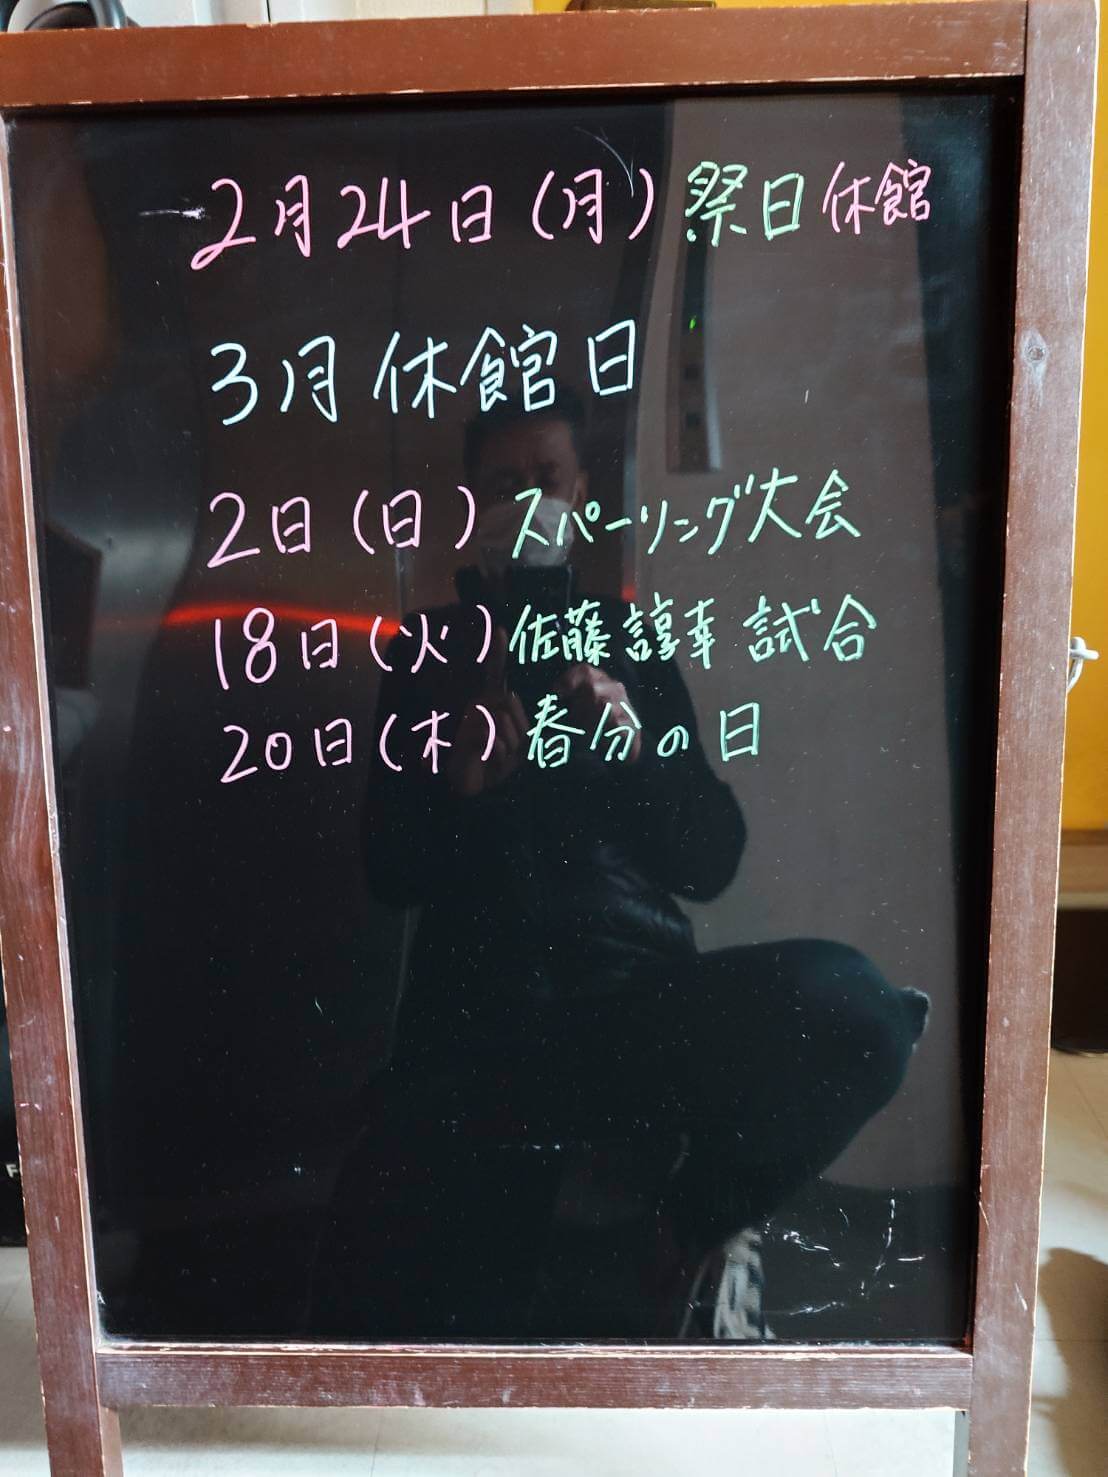 2月24日(月)祭日休館
3月休館日
2日(日)スパーリング大会
18日(火)佐藤諄幸 試合
20日(木)春分の日